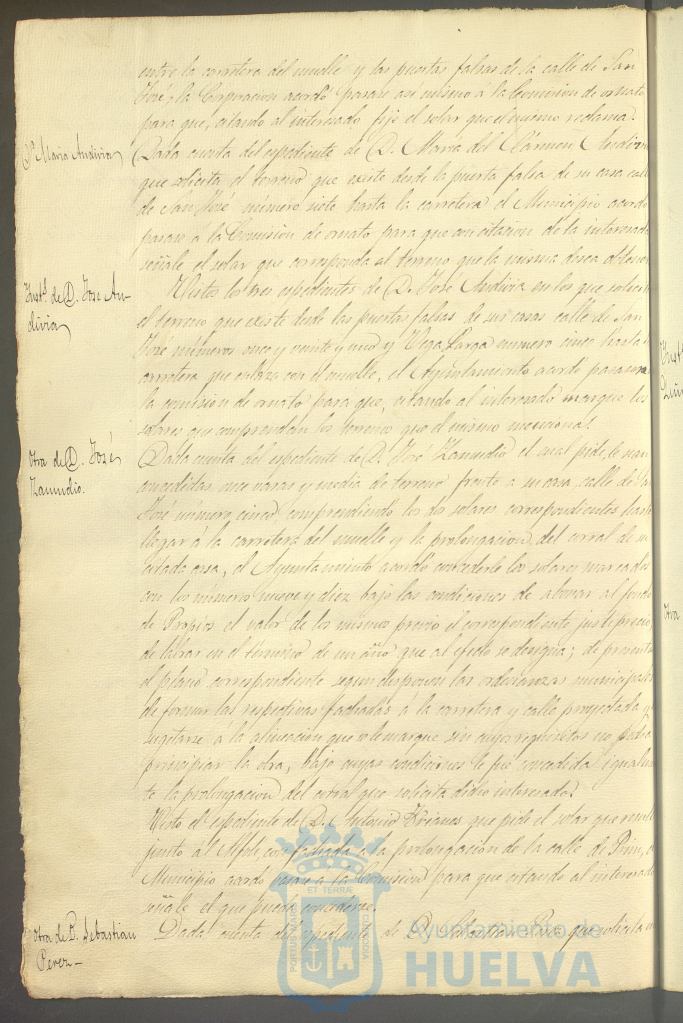 entre la carretera del muelle y las puertas falsas de la calle de San
José, la Corporacion acordó pasase asi mismo a la Comision de ornato
para que, citando al interesado fije el solar que el mismo reclama.
Dª Maria Andivia
Dada cuenta del espediente de D. Maria del Cármen Andivia
que solicita el terreno que existe desde la puerta falsa de su casa calle
de San José número siete hasta la carretera el Municipio acordó
pasase a la Comision de ornato para que con citacion de la interesada
señale el solar que corresponda al terreno que la misma desea obtener
Inst.ª de D. José An-
divia
Vistos los tres espedientes de D. José Andivia en los que solicita
el terreno que existe desde las puertas falsas de sus casas calle de San
José números once y veinte y uno y Vega Larga numero cinco hasta la
carretera que enlaza con el muelle, el Ayuntamiento acordó pasasen a
la comision de ornato para que, citando al interesado marque los
solares que comprendan los terreno que el mismo menciona.
Otra de D. José
Zamudio.
Dada cuenta del espediente de D. José Zamudio el cual pide le sean
concedidas once varas y media de terreno frente a su casa, calle de San
José número cinco, comprendiendo los dos solares correspondientes hasta
llegar á la carretera del muelle y la prolongacion del corral de su
citada casa, el Ayuntamiento acordó concederle los solares marcados
con los números nueve y diez bajo las condiciones de abonar al fondo
de Propios el valor de los mismos previo el correspondiente justiprecio,
de labrar en el término de un año que al efecto se designa; de presentar
el plano correspondiente segun disponen las ordenanzas municipales
de formar las respectivas fachadas a la carretera y calle proyectada y
sugetarse a la alineacion que se le marque sin cuyos requisitos no podrá
principiar la obra, bajo cuyas condiciones le fué concedida igualmen
te la prolongacion del corral que solicita dicho interesado.
Visto el espediente de D. Antonio que pide el solar que
junto al con fachada a la prolongacion de la calle de Prim, el
Municipio acordó pasase a la Comision para que citando al interesado
señale el que pueda concederse.
Otra de D. Sebastian
Perez
Dada cuenta del espediente de D. Sebastian Perez que solicita
Inst.ª
Otra
ET TERRA
PORTUS
CUSTODIA
Ayuntamiento de
HUELVA